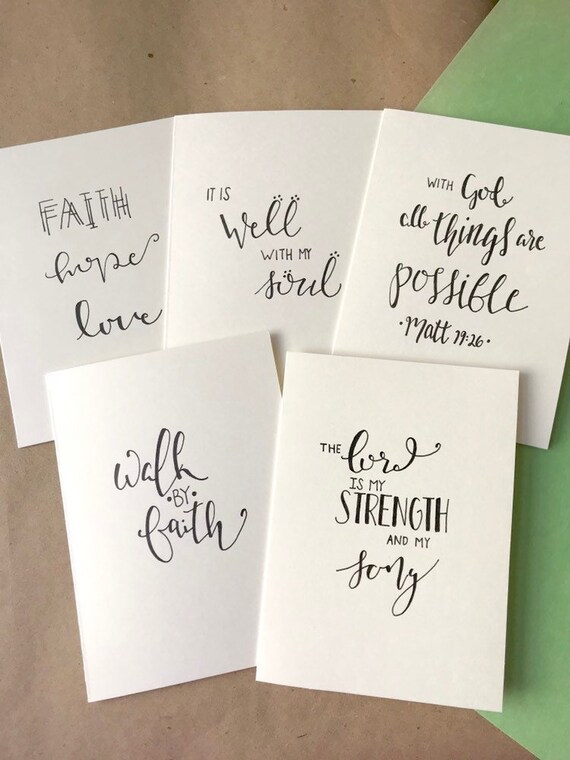 FAITH
hope
love
IT IS
well
WITH MY
soul
WITH God
all things are
possible
·Matt 19:26·
walk
·BY·
faith
THE lord
IS MY
STRENGTH
AND MY
song